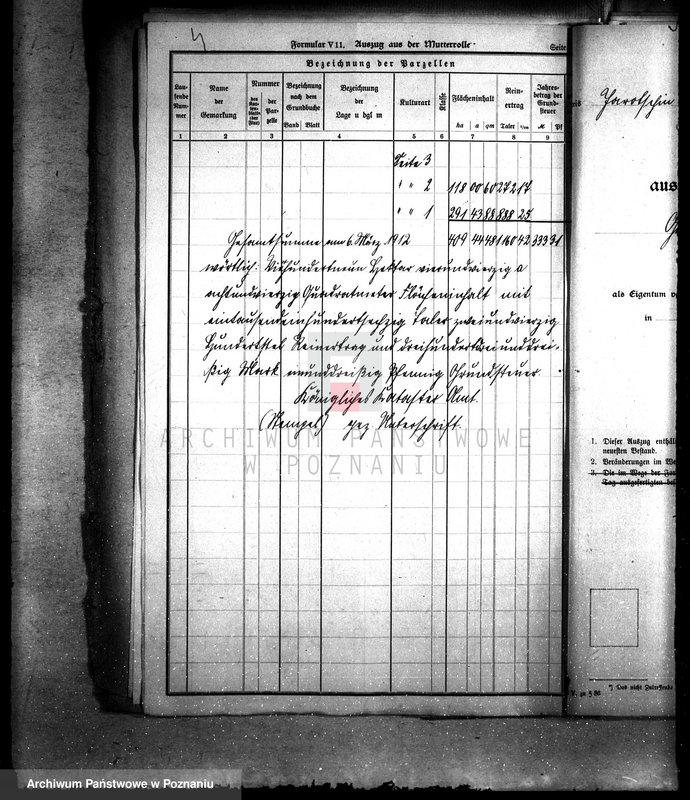 4
Formular VII. Auszug aus der Mutterrolle
Seite
Bezeichnung der Parzellen
Laufende Nummer
Name der Gemarkung
Nummer
des Kartenblatts (der Flur)
der Parzelle
Bezeichnung nach dem Grundbuche
Band Blatt
Bezeichnung der Lage u dgl m
Kulturart
Klasse
Flächeninhalt
ha a qm
Reinertrag
Taler
Jahresbetrag der Grundsteuer
M Pf
1 2 3 4 5 6 7 8 9
Seite 3
" " 2 118 00 60 272 17
" " 1 291 43 88 888 25
Gesamtsumme am 6. März 1912 409 44 48 1160 42 333 31
wörtlich: Vierhundertneun Hektar vierundvierzig a
achtundvierzig Quadratmeter Flächeninhalt mit
eintausendeinhundertsechzig Taler zweiundvierzig
Hundertstel Reinertrag und dreihundertdreiunddrei-
ßig Mark einunddreißig Pfennig Grundsteuer
Königliches Kataster Amt.
(Stempel) gez. Unterschrift
Jarotschin
aus
als Eigentum v
in
1. Dieser Auszug enthäl
neuesten Bestand.
2. Veränderungen im We
3. Die im Wege der
Tag ausgefertigten bef
*) Das nicht Zutreffende
ARCHIWUM PAŃSTWOWE
W POZNANIU
Archiwum Państwowe w Poznaniu